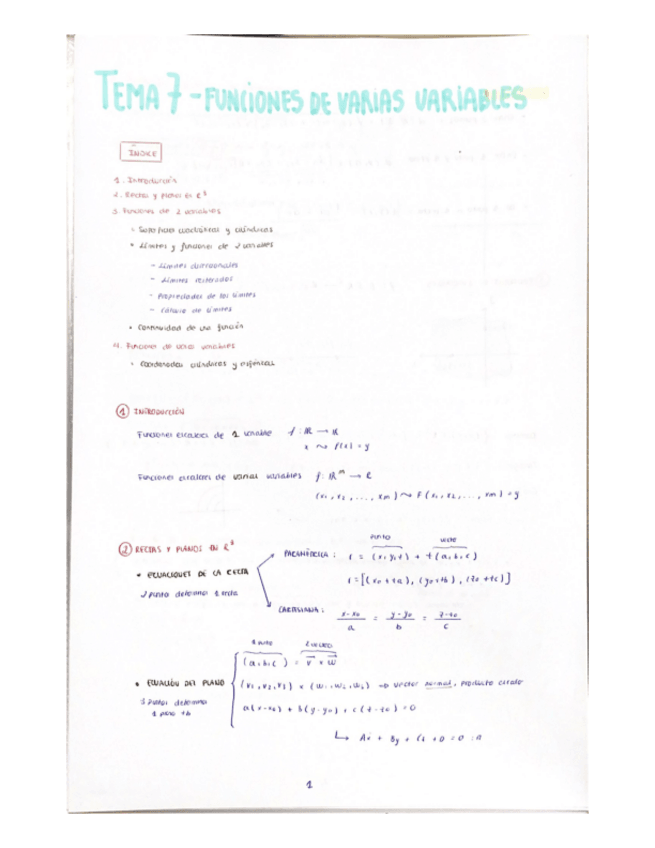 TEMA 7 - FUNCIONES DE VARIAS VARIABLES
ÍNDICE
1. Introducción
2. Rectas y planos en R³
3. Funciones de 2 variables
• Superficies cuadráticas y cilíndricas
• Límites y funciones de 2 variables
- Límites direccionales
- Límites reiterados
- Propiedades de los límites
- Cálculo de límites
• Continuidad de una función
4. Funciones de varias variables
• Coordenadas cilíndricas y esféricas
① INTRODUCCIÓN
Funciones escalares de 1 variable f: R → R
x ⤳ f(x) = y
Funciones escalares de varias variables f: Rᵐ → R
(x₁, x₂, ..., xm) ⤳ f(x₁, x₂, ..., xm) = y
② RECTAS Y PLANOS EN R³
• ECUACIONES DE LA RECTA
2 puntos determina 1 recta
PARAMÉTRICA:
punto
r = (x, y, z) + t(a, b, c)
r = [(x₀ + ta), (y₀ + tb), (z₀ + tc)]
CARTESIANA: x-x₀/a = y-y₀/b = z-z₀/c
• ECUACIÓN DEL PLANO
3 puntos determina
1 plano
(a, b, c) = v × w
(v₁, v₂, v₃) × (w₁, w₂, w₃) → vector normal, producto
a(x-x₀) + b(y-y₀) + c(z-z₀) = 0
↳ Ax + By + Cz + D = 0
1